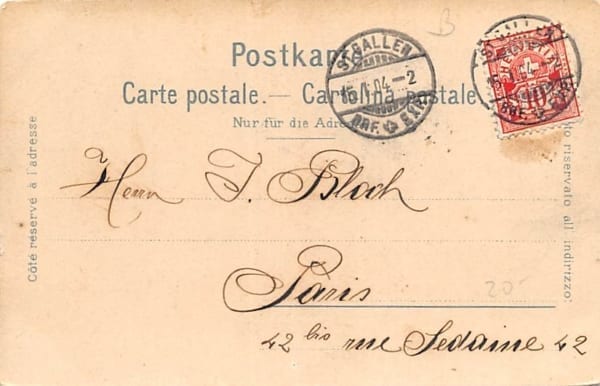 B
Postkarte.
Carte postale. — Cartolina postale.
Nur für die Adresse
ST. GALLEN
15.I.04.-2
BRF. EXP.
HELVETIA
10
Côté réservé à l'adresse
Lato riservato all indirizzo:
Herrn J. Bloch
Paris
20-
42 bis rue Sedaine 42